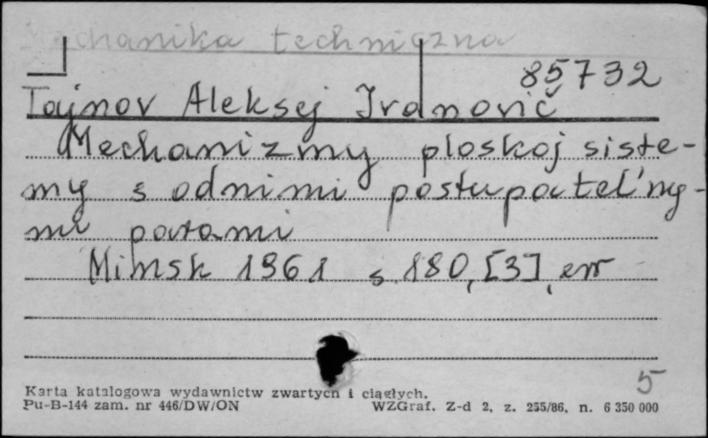 Mechanika techniczna
85732
Tajnov Aleksej Ivanovič
Mechanizmy ploskoj siste-
my s odnimi postupatel'ny-
mi parami
Minsk 1961 s. 180, [3], err
5
Karta katalogowa wydawnictw zwartych i ciągłych.
Pu-B-144 zam. nr 446/DW/ON WZGraf. Z-d 2, z. 255/86, n. 6 350 000